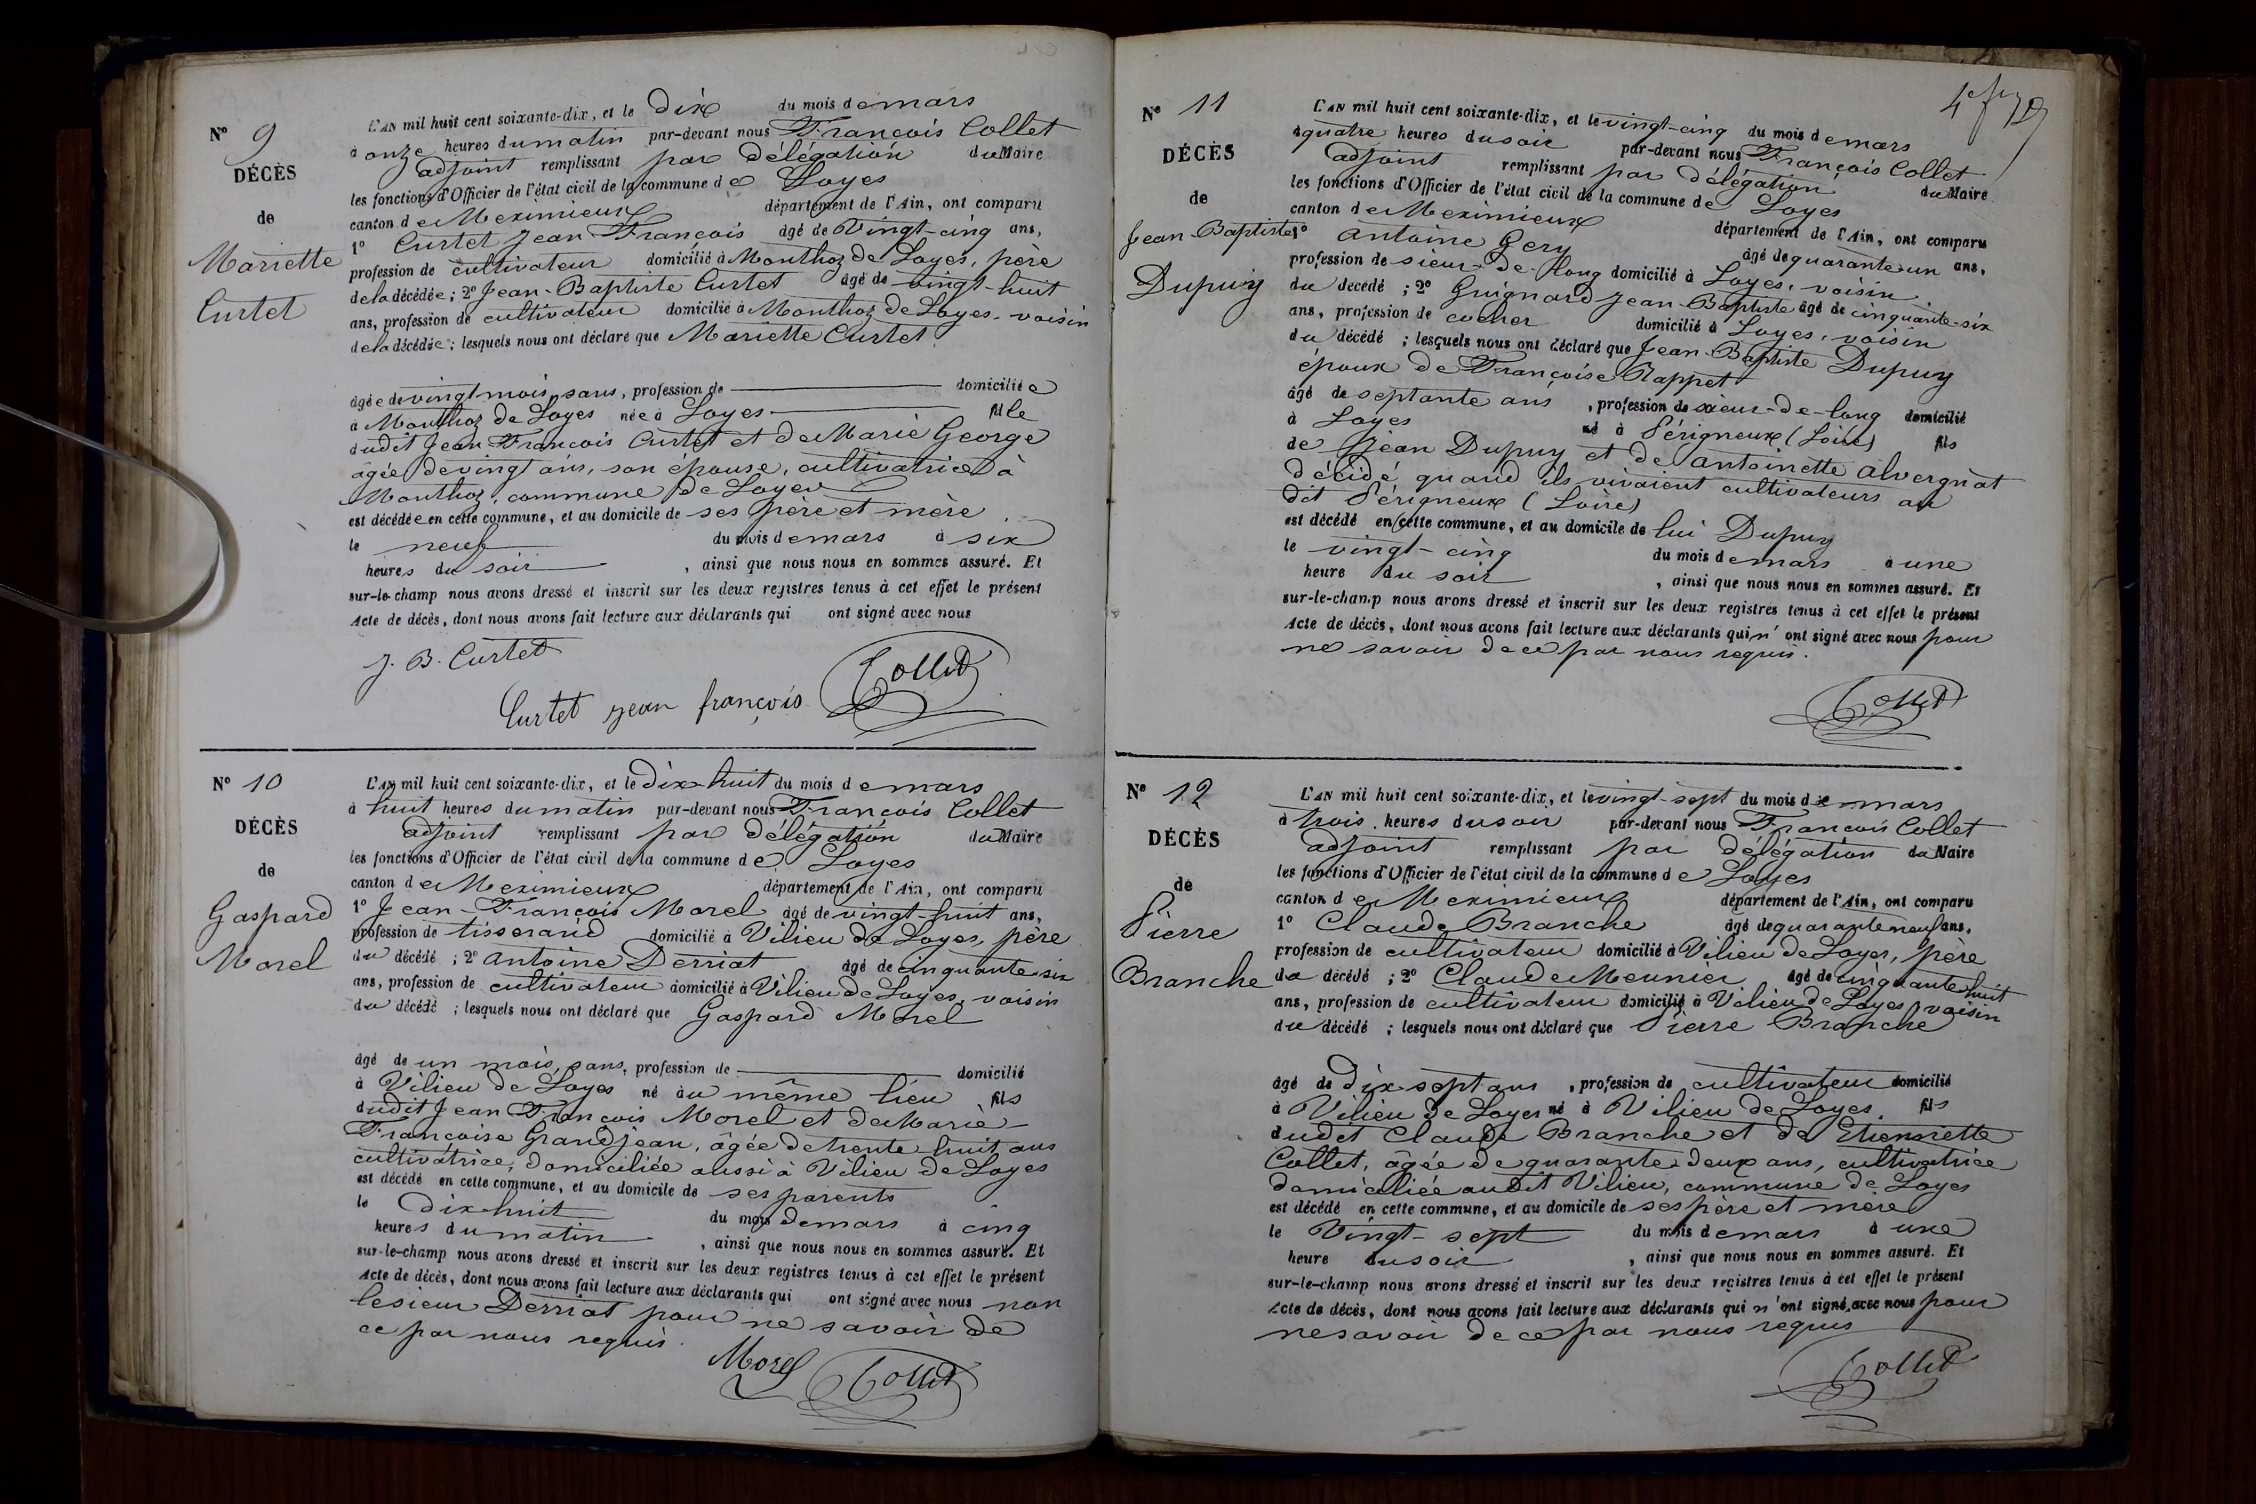 N° 9
DÉCÈS
de
Mariette
Curtet
L'AN mil huit cent soixante-dix, et le dix du mois de mars
à onze heures du matin par-devant nous François Collet
adjoint remplissant par délégation du Maire
les fonctions d'Officier de l'état civil de la commune de Loyes
canton de Meximieux département de l'Ain, ont comparu
1° Curtet Jean François âgé de vingt-cinq ans,
profession de cultivateur domicilié à Monthoz de Loyes, père
de la décédée ; 2° Jean-Baptiste Curtet âgé de vingt-huit
ans, profession de cultivateur domicilié à Monthoz de Loyes, voisin
de la décédée ; lesquels nous ont déclaré que Mariette Curtet
âgée de vingt mois, sans, profession de domiciliée
à Monthoz de Loyes née à Loyes fille
dudit Jean François Curtet et de Marie George
âgée de vingt ans, son épouse, cultivatrice à
Monthoz, commune de Loyes
est décédée en cette commune, et au domicile de ses père et mère
le neuf du mois de mars à six
heures du soir, ainsi que nous nous en sommes assuré. Et
sur-le-champ nous avons dressé et inscrit sur les deux registres tenus à cet effet le présent
Acte de décès, dont nous avons fait lecture aux déclarants qui ont signé avec nous
J. B. Curtet
Curtet jean françois Collet
N° 10
DÉCÈS
de
Gaspard
Morel
L'AN mil huit cent soixante-dix, et le dix-huit du mois de mars
à huit heures du matin par-devant nous François Collet
adjoint remplissant par délégation du Maire
les fonctions d'Officier de l'état civil de la commune de Loyes
canton de Meximieux département de l'Ain, ont comparu
1° Jean-François Morel âgé de vingt-huit ans,
profession de tisserand domicilié à Vilieu de Loyes, père
du décédé ; 2° Antoine Derriat âgé de cinquante six
ans, profession de cultivateur domicilié à Vilieu de Loyes, voisin
du décédé ; lesquels nous ont déclaré que Gaspard Morel
âgé de un mois, sans, profession de domicilié
à Vilieu de Loyes né au même lieu fils
dudit Jean François Morel et de Marie-
Françoise Grandjean, âgée de trente huit ans
cultivatrice, domiciliée aussi à Vilieu de Loyes
est décédé en cette commune, et au domicile de ses parents
le dix-huit du mois de mars à cinq
heures du matin, ainsi que nous nous en sommes assuré. Et
sur-le-champ nous avons dressé et inscrit sur les deux registres tenus à cet effet le présent
Acte de décès, dont nous avons fait lecture aux déclarants qui ont signé avec nous non
le sieur Derriat pour ne savoir de
ce par nous requis.
Morel Collet
N° 11
DÉCÈS
de
Jean-Baptiste
Dupuy
L'AN mil huit cent soixante-dix, et le vingt-cinq du mois de mars
à quatre heures du soir par-devant nous François Collet
adjoint remplissant par délégation du Maire
les fonctions d'Officier de l'état civil de la commune de Loyes
canton de Meximieux département de l'Ain, ont comparu
1° Antoine Gery âgé de quarante un ans,
profession de sieur-de-long domicilié à Loyes, voisin
du décédé ; 2° Guignard Jean-Baptiste âgé de cinquante-six
ans, profession de cocher domicilié à Loyes, voisin
du décédé ; lesquels nous ont déclaré que Jean-Baptiste Dupuy
époux de Françoise Rappet
âgé de septante ans, profession de sieur-de-long domicilié
à Loyes né à Périgneux (Loire) fils
de Jean Dupuy et de Antoinette Alvergnat
décédé quand ils vivaient cultivateurs au
dit Périgneux (Loire)
est décédé en cette commune, et au domicile de lui Dupuy
le vingt-cinq du mois de mars à une
heure du soir, ainsi que nous nous en sommes assuré. Et
sur-le-champ nous avons dressé et inscrit sur les deux registres tenus à cet effet le présent
Acte de décès, dont nous avons fait lecture aux déclarants qui n'ont signé avec nous pour
ne savoir de ce par nous requis.
Collet
N° 12
DÉCÈS
de
Pierre
Branche
L'AN mil huit cent soixante-dix, et le vingt-sept du mois de mars
à trois heures du soir par-devant nous François Collet
adjoint remplissant par délégation du Maire
les fonctions d'Officier de l'état civil de la commune de Loyes
canton de Meximieux département de l'Ain, ont comparu
1° Claude Branche âgé de quarante neuf ans,
profession de cultivateur domicilié à Vilieu de Loyes, père
du décédé ; 2° Claude Meunier âgé de cinquante huit
ans, profession de cultivateur domicilié à Vilieu de Loyes, voisin
du décédé ; lesquels nous ont déclaré que Pierre Branche
âgé de dix-sept ans, profession de cultivateur domicilié
à Vilieu de Loyes né à Vilieu de Loyes, fils
dudit Claude Branche et de Etiennette
Collet, âgée de quarante deux ans, cultivatrice
domiciliée audit Vilieu, commune de Loyes
est décédé en cette commune, et au domicile de ses père et mère
le vingt-sept du mois de mars à une
heure du soir, ainsi que nous nous en sommes assuré. Et
sur-le-champ nous avons dressé et inscrit sur les deux registres tenus à cet effet le présent
Acte de décès, dont nous avons fait lecture aux déclarants qui n'ont signé avec nous pour
ne savoir de ce par nous requis
Collet